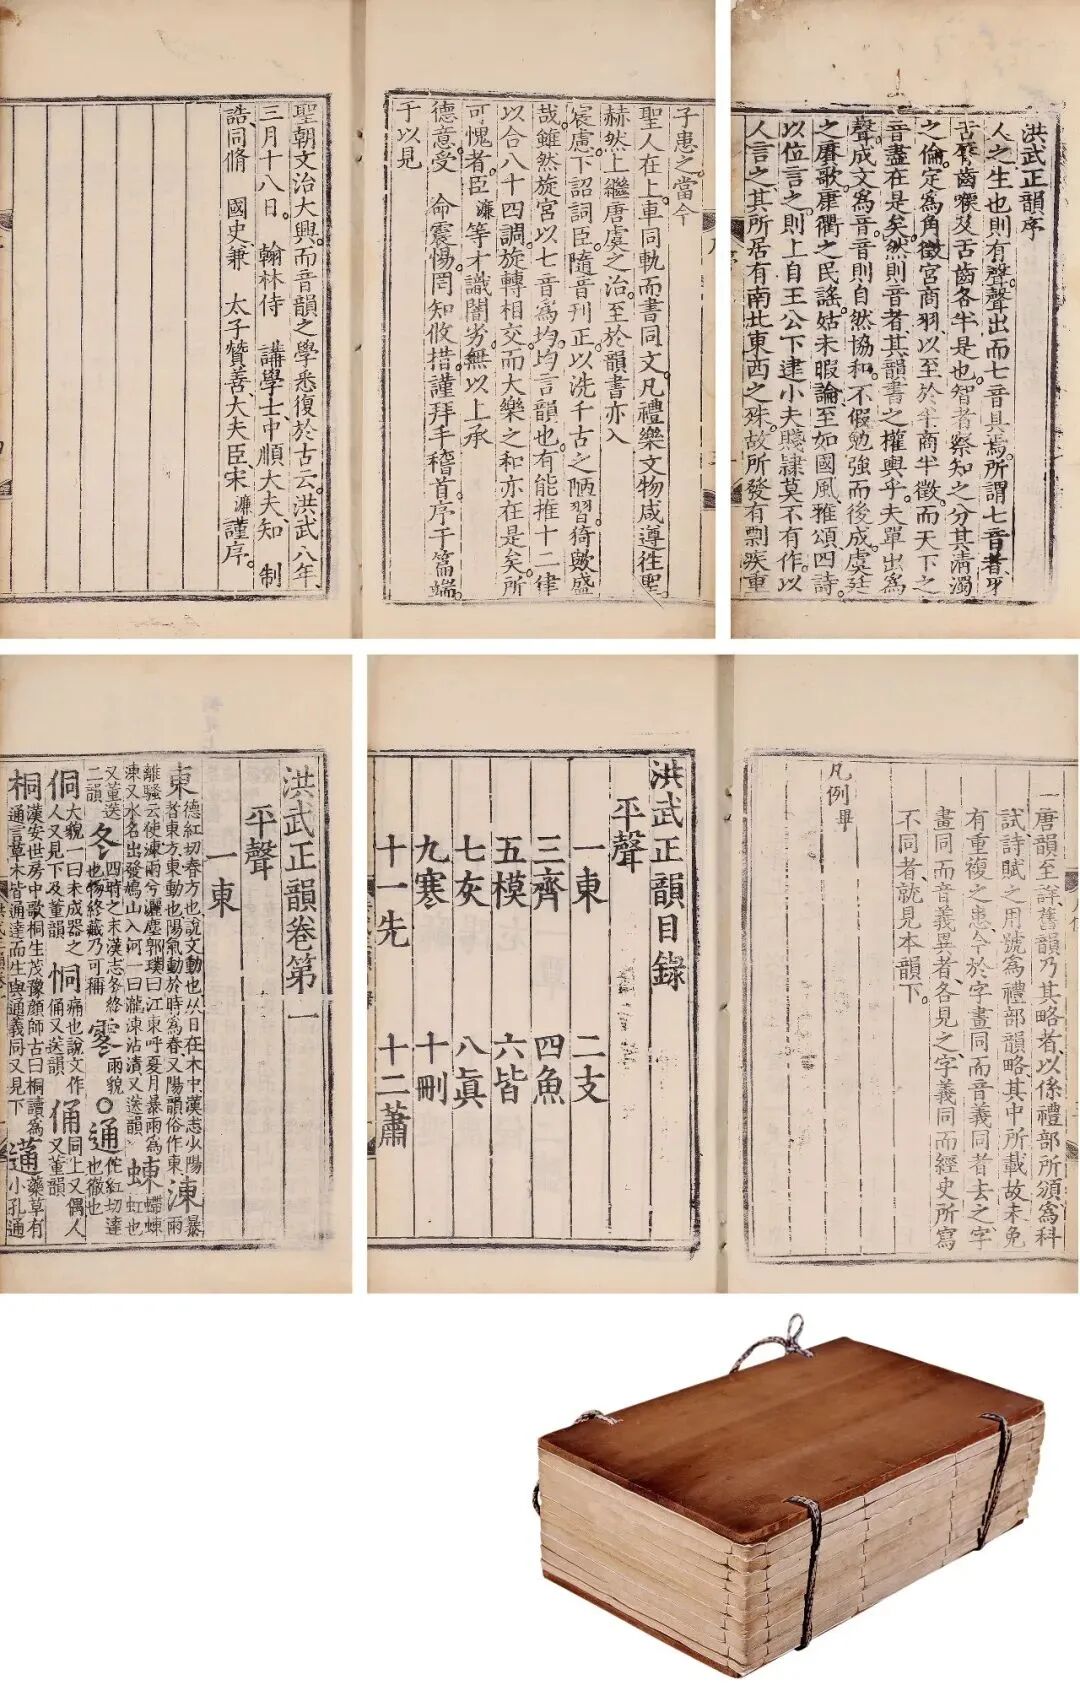 洪武正韻序
人之生也則有聲聲出而七音具焉所謂七音者牙
舌脣齒喉及舌齒各半是也智者察知之分其清濁
之倫定為角徵宮商羽以至於半商半徵而天下之
音盡在是矣然則音者其韻書之權輿乎夫單出為
聲成文為音音則自然協和不假勉強而後成虞廷
之賡歌康衢之民謠姑未暇論至如國風雅頌四詩
以位言之則上自王公下逮小夫賤隷莫不有作以
人言之其所居有南北東西之殊故所發有剽疾重
子患之當今
聖人在上車同軌而書同文凡禮樂文物咸遵往聖
赫然上繼唐虞之治至於韻書亦入
宸慮下詔詞臣隨音刊正以洗千古之陋習猗歟盛
哉雖然旋宮以七音為均均言韻也有能推十二律
以合八十四調旋轉相交而大樂之和亦在是矣所
可愧者臣濂等才識闇劣無以上承
德意受 命震惕罔知攸措謹拜手稽首序于篇端
于以見
聖朝文治大興而音韻之學悉復於古云洪武八年
三月十八日 翰林侍 講學士中順大夫知 制
誥同脩 國史兼 太子贊善大夫臣宋濂謹序
一唐韻至詳舊韻乃其略者以係禮部所頒為科
試詩賦之用號為禮部韻略其中所載故未免
有重複之患今於字畫同而音義同者去之字
畫同而音義異者各見之字義同而經史所寫
不同者就見本韻下
凡例畢
洪武正韻目錄
平聲
一東 二支
三齊 四魚
五模 六皆
七灰 八眞
九寒 十刪
十一先 十二蕭
洪武正韻卷第一
平聲
一東
東德紅切春方也說文動也从日在木中漢志少陽
者東方東動也陽氣動於時為春又陽韻俗作東涷暴雨
離騷云使涷雨兮灑塵郭璞曰江東呼夏月暴雨為
涷又水名出發鳩山入河一曰瀧涷沾漬又送韻蝀螮蝀虹也
又董送二韻冬四時之末漢志冬終也物終藏乃可稱 零雨貌○通佗紅切達也徹也
侗大貌一曰未成器之人又見下及董韻恫痛也說文作俑又送韻俑同上又偶人又董韻
桐漢安世房中歌桐生茂豫顏師古曰桐讀為通言草木皆通達而生與通義同又見下 藥草有小孔通